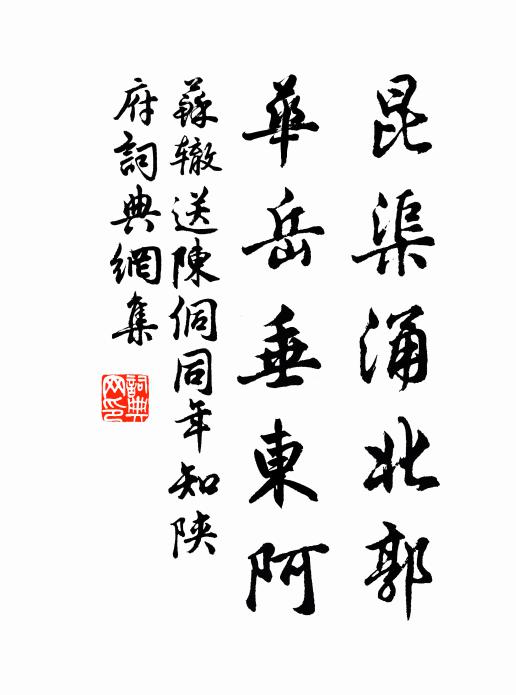 昆渠涌北郭
華岳垂東阿
蘇辙送陳侗同年知陕
府詞典網集
詞典网印